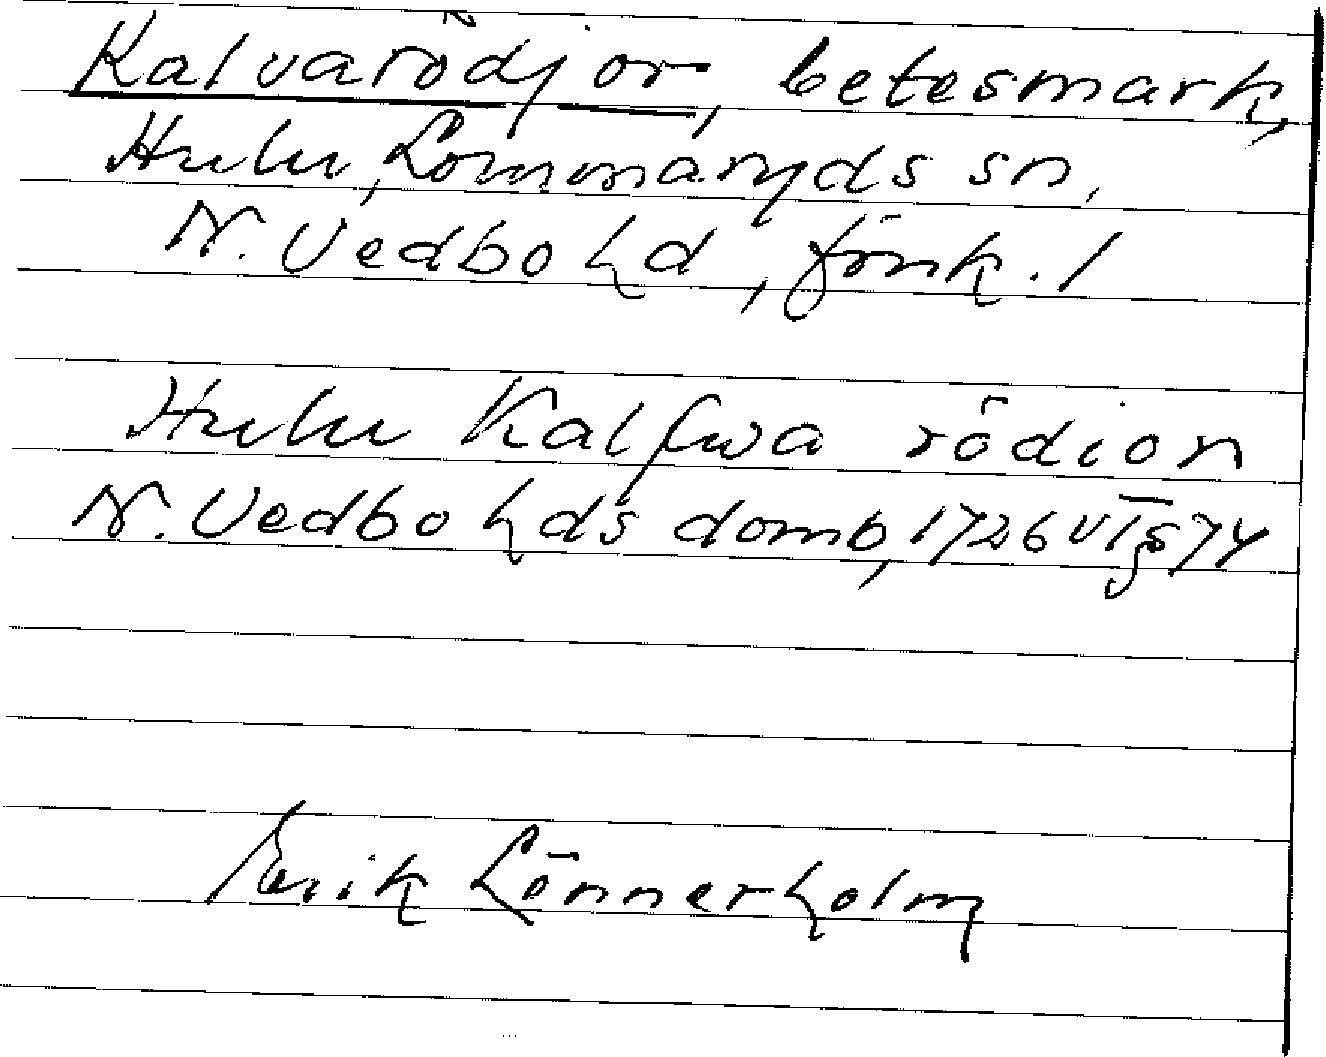 Kalvarödjor, betesmark,
Hulu, Lommaryds sn,
N. Vedbo hd, Jönk. l
Hulu Kalfwa rödion
N. Vedbo hds domb, 1726 VT § 74
Erik Lönnerholm